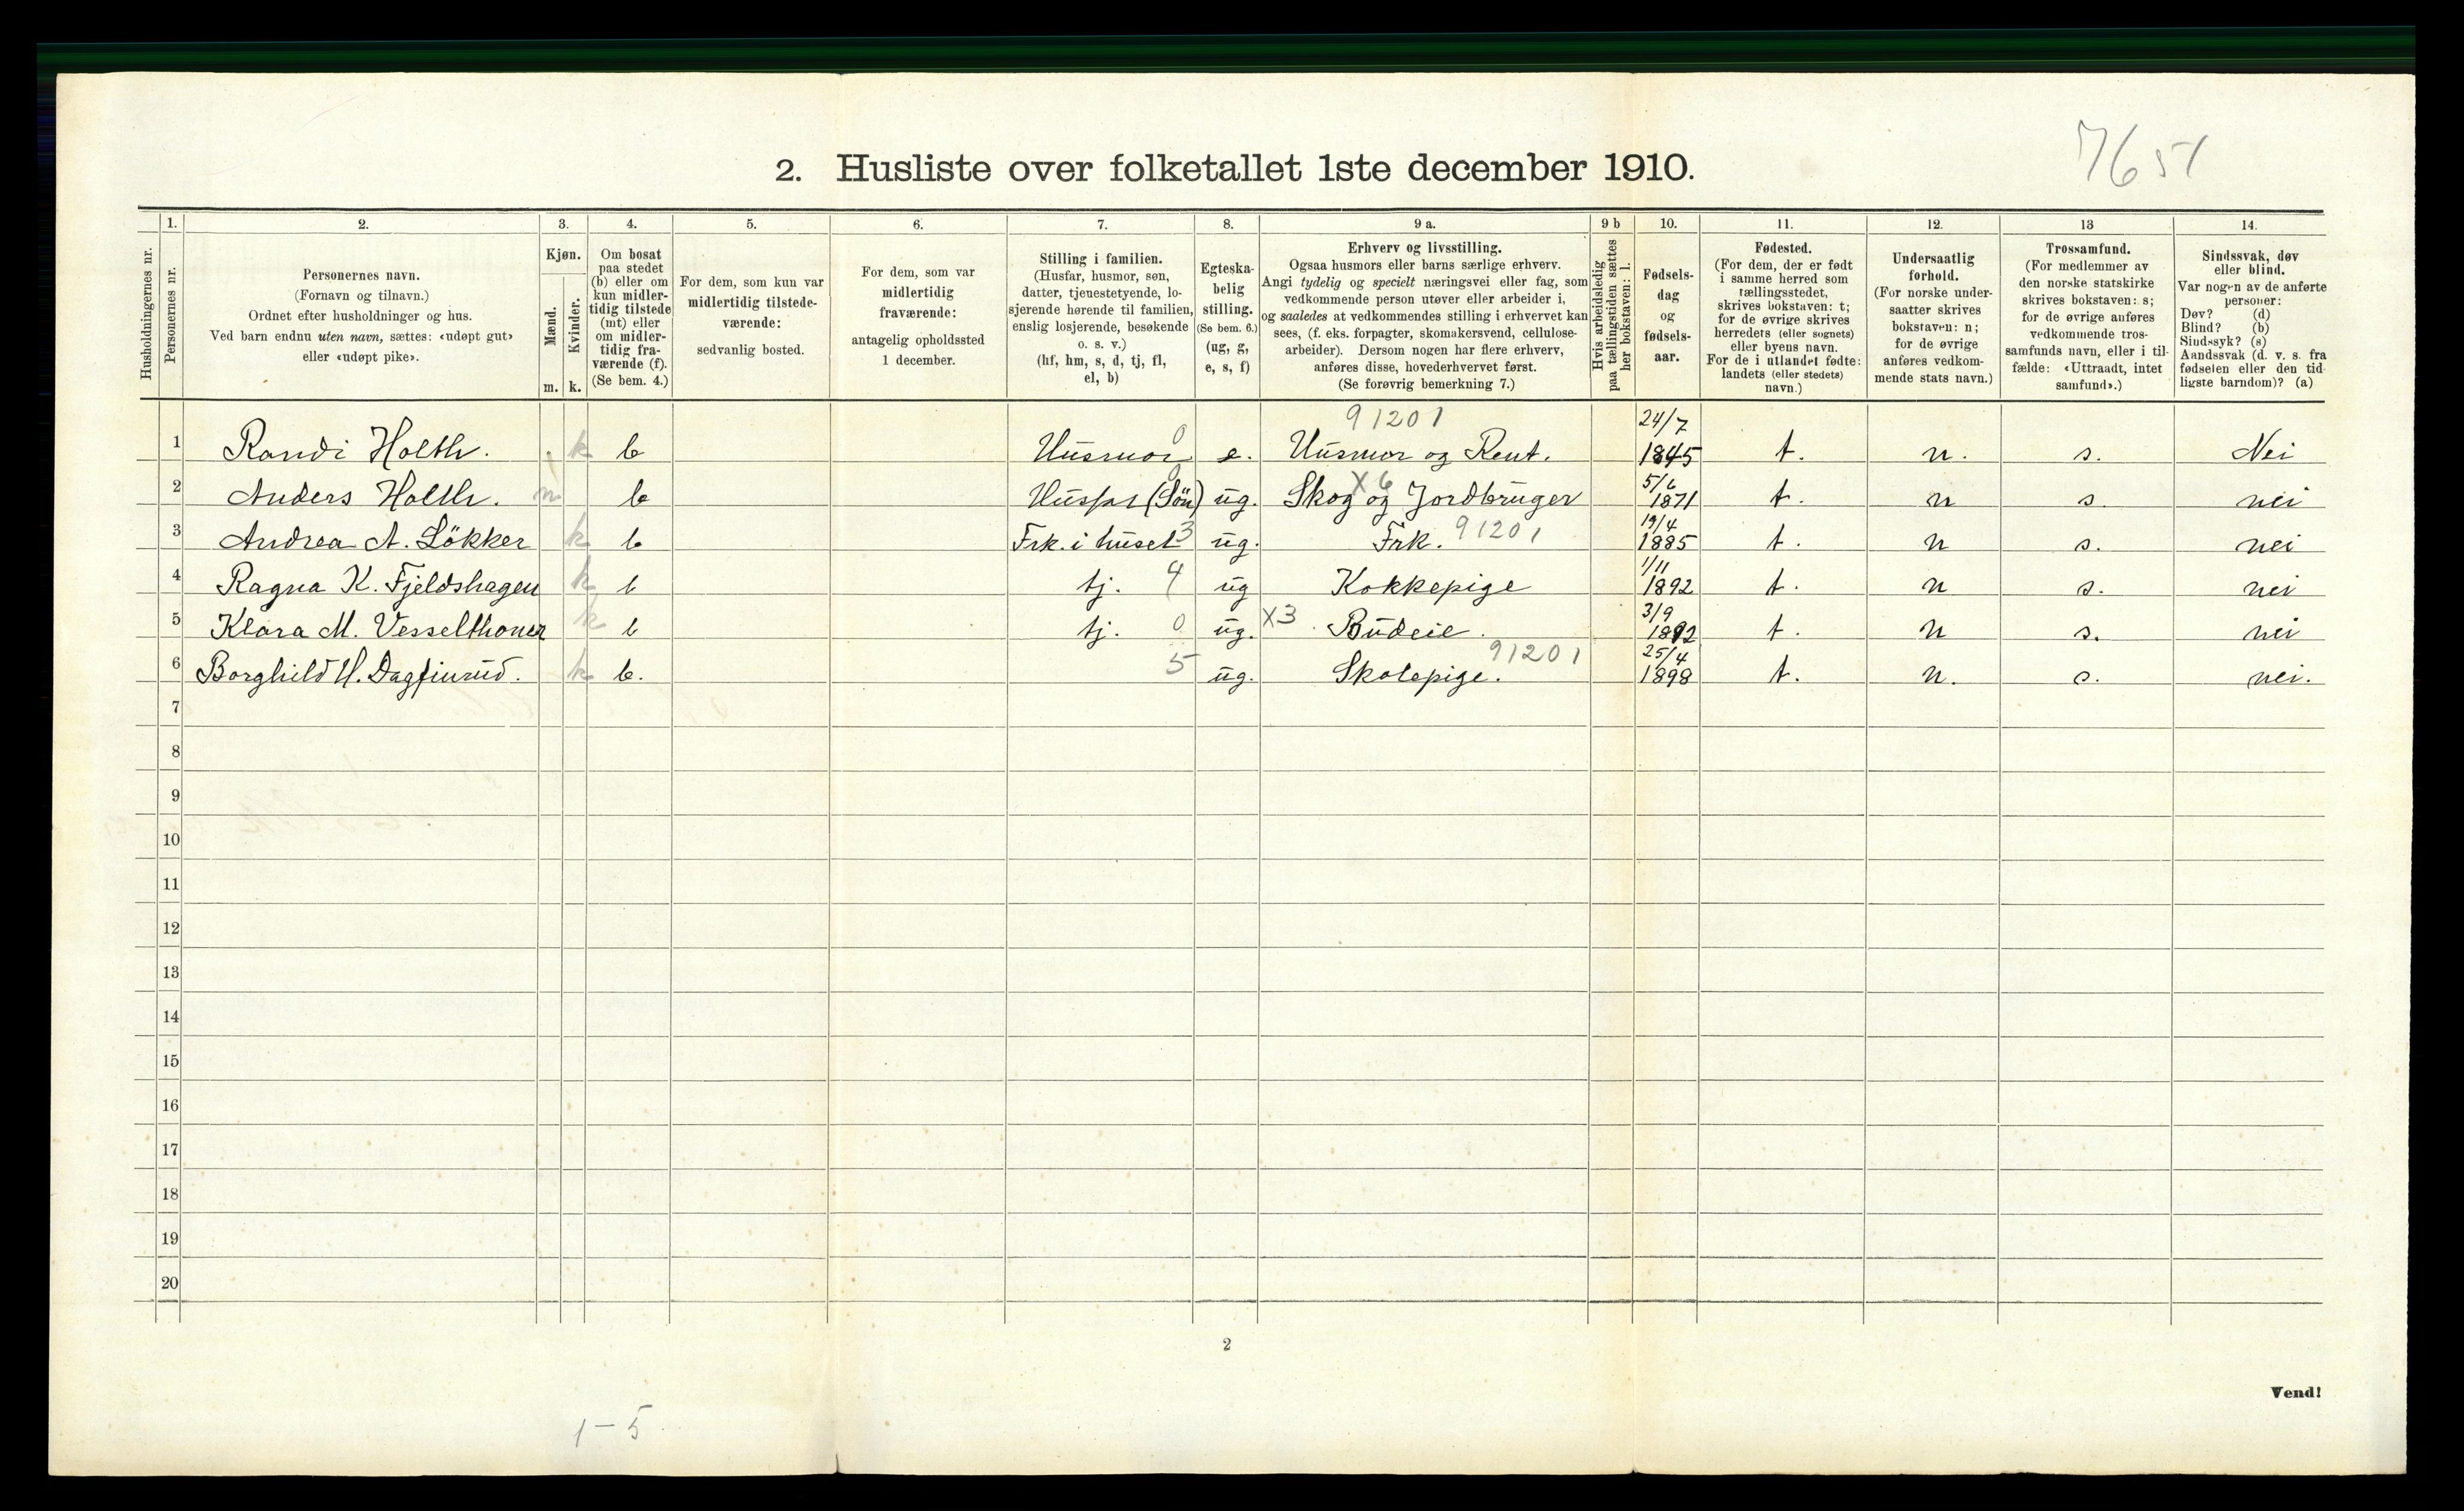 7651
2. Husliste over folketallet 1ste december 1910.
Husholdningernes nr.
1.
Personernes nr.
2.
Personernes navn.
(Fornavn og tilnavn.)
Ordnet efter husholdninger og hus.
Ved barn endnu uten navn, sættes: «udøpt gut»
eller «udøpt pike».
3.
Kjøn.
Mænd.
Kvinder.
m. k.
4.
Om bosat
paa stedet
(b) eller om
kun midler-
tidig tilstede
(mt) eller
om midler-
tidig fra-
værende (f).
(Se bem. 4.)
5.
For dem, som kun var
midlertidig tilstede-
værende:
sedvanlig bosted.
6.
For dem, som var
midlertidig
fraværende:
antagelig opholdssted
1 december.
7.
Stilling i familien.
(Husfar, husmor, søn,
datter, tjenestetyende, lo-
sjerende hørende til familien,
enslig losjerende, besøkende
o. s. v.)
(hf, hm, s, d, tj, fl,
el, b)
8.
Egteska-
belig
stilling.
(Se bem. 6.)
(ug, g,
e, s, f)
9 a.
Erhverv og livsstilling.
Ogsaa husmors eller barns særlige erhverv.
Angi tydelig og specielt næringsvei eller fag, som
vedkommende person utøver eller arbeider i,
og saaledes at vedkommendes stilling i erhvervet kan
sees, (f. eks. forpagter, skomakersvend, cellulose-
arbeider). Dersom nogen har flere erhverv,
anføres disse, hovederhvervet først.
(Se forøvrig bemerkning 7.)
9 b
Hvis arbeidsledig
paa tællingstiden sættes
her bokstaven: l.
10.
Fødsels-
dag
og
fødsels-
aar.
11.
Fødested.
(For dem, der er født
i samme herred som
tællingsstedet,
skrives bokstaven: t;
for de øvrige skrives
herredets (eller sognets)
eller byens navn.
For de i utlandet fødte:
landets (eller stedets)
navn.)
12.
Undersaatlig
forhold.
(For norske under-
saatter skrives
bokstaven: n;
for de øvrige
anføres vedkom-
mende stats navn.)
13
Trossamfund.
(For medlemmer av
den norske statskirke
skrives bokstaven: s;
for de øvrige anføres
vedkommende tros-
samfunds navn, eller i til-
fælde: «Uttraadt, intet
samfund».)
14.
Sindssvak, døv
eller blind.
Var nogen av de anførte
personer:
Døv? (d)
Blind? (b)
Sindssyk? (s)
Aandssvak (d. v. s. fra
fødselen eller den tid-
ligste barndom)? (a)
91201 24/7
1 Randi Holth. k b Husmor 0 e. Husmor og Rent. 1845 t. n. s. Nei
2 Anders Holth. m b (Sön) 0 ug. Skog og Jordbruger X6 5/6 1871 t. n s. nei
3 Andrea A. Lökker k b Frk. i huset 3 ug. Frk. 91201 19/4 1885 t. n s. nei
4 Ragna K. Fjeldshagen k b tj. 4 ug Kokkepige 1/11 1892 t. n s. nei
5 Klara M. Vesselthonen k b tj. 0 ug. X3 Budeie. 3/9 1892 t. n s. nei
6 Borghild H. Dagfinrud. k b. 5 ug. Skolepige. 91201 25/4 1898 t. n. s. nei.
7
8
9
10
11
12
13
14
15
16
17
18
19
20
2
Vend!
1–5